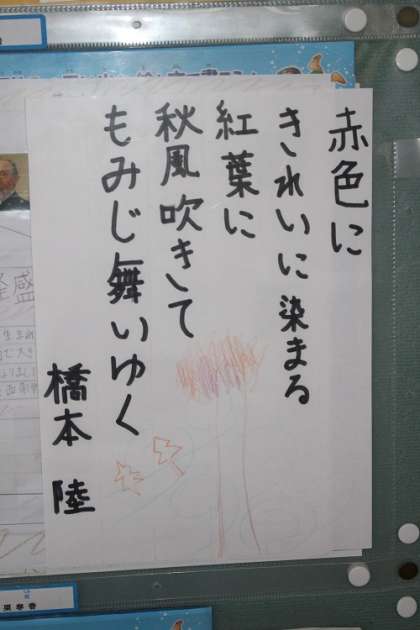 赤色に
きれいに染まる
紅葉に
秋風吹きして
もみじ舞いゆく
橋本 陸